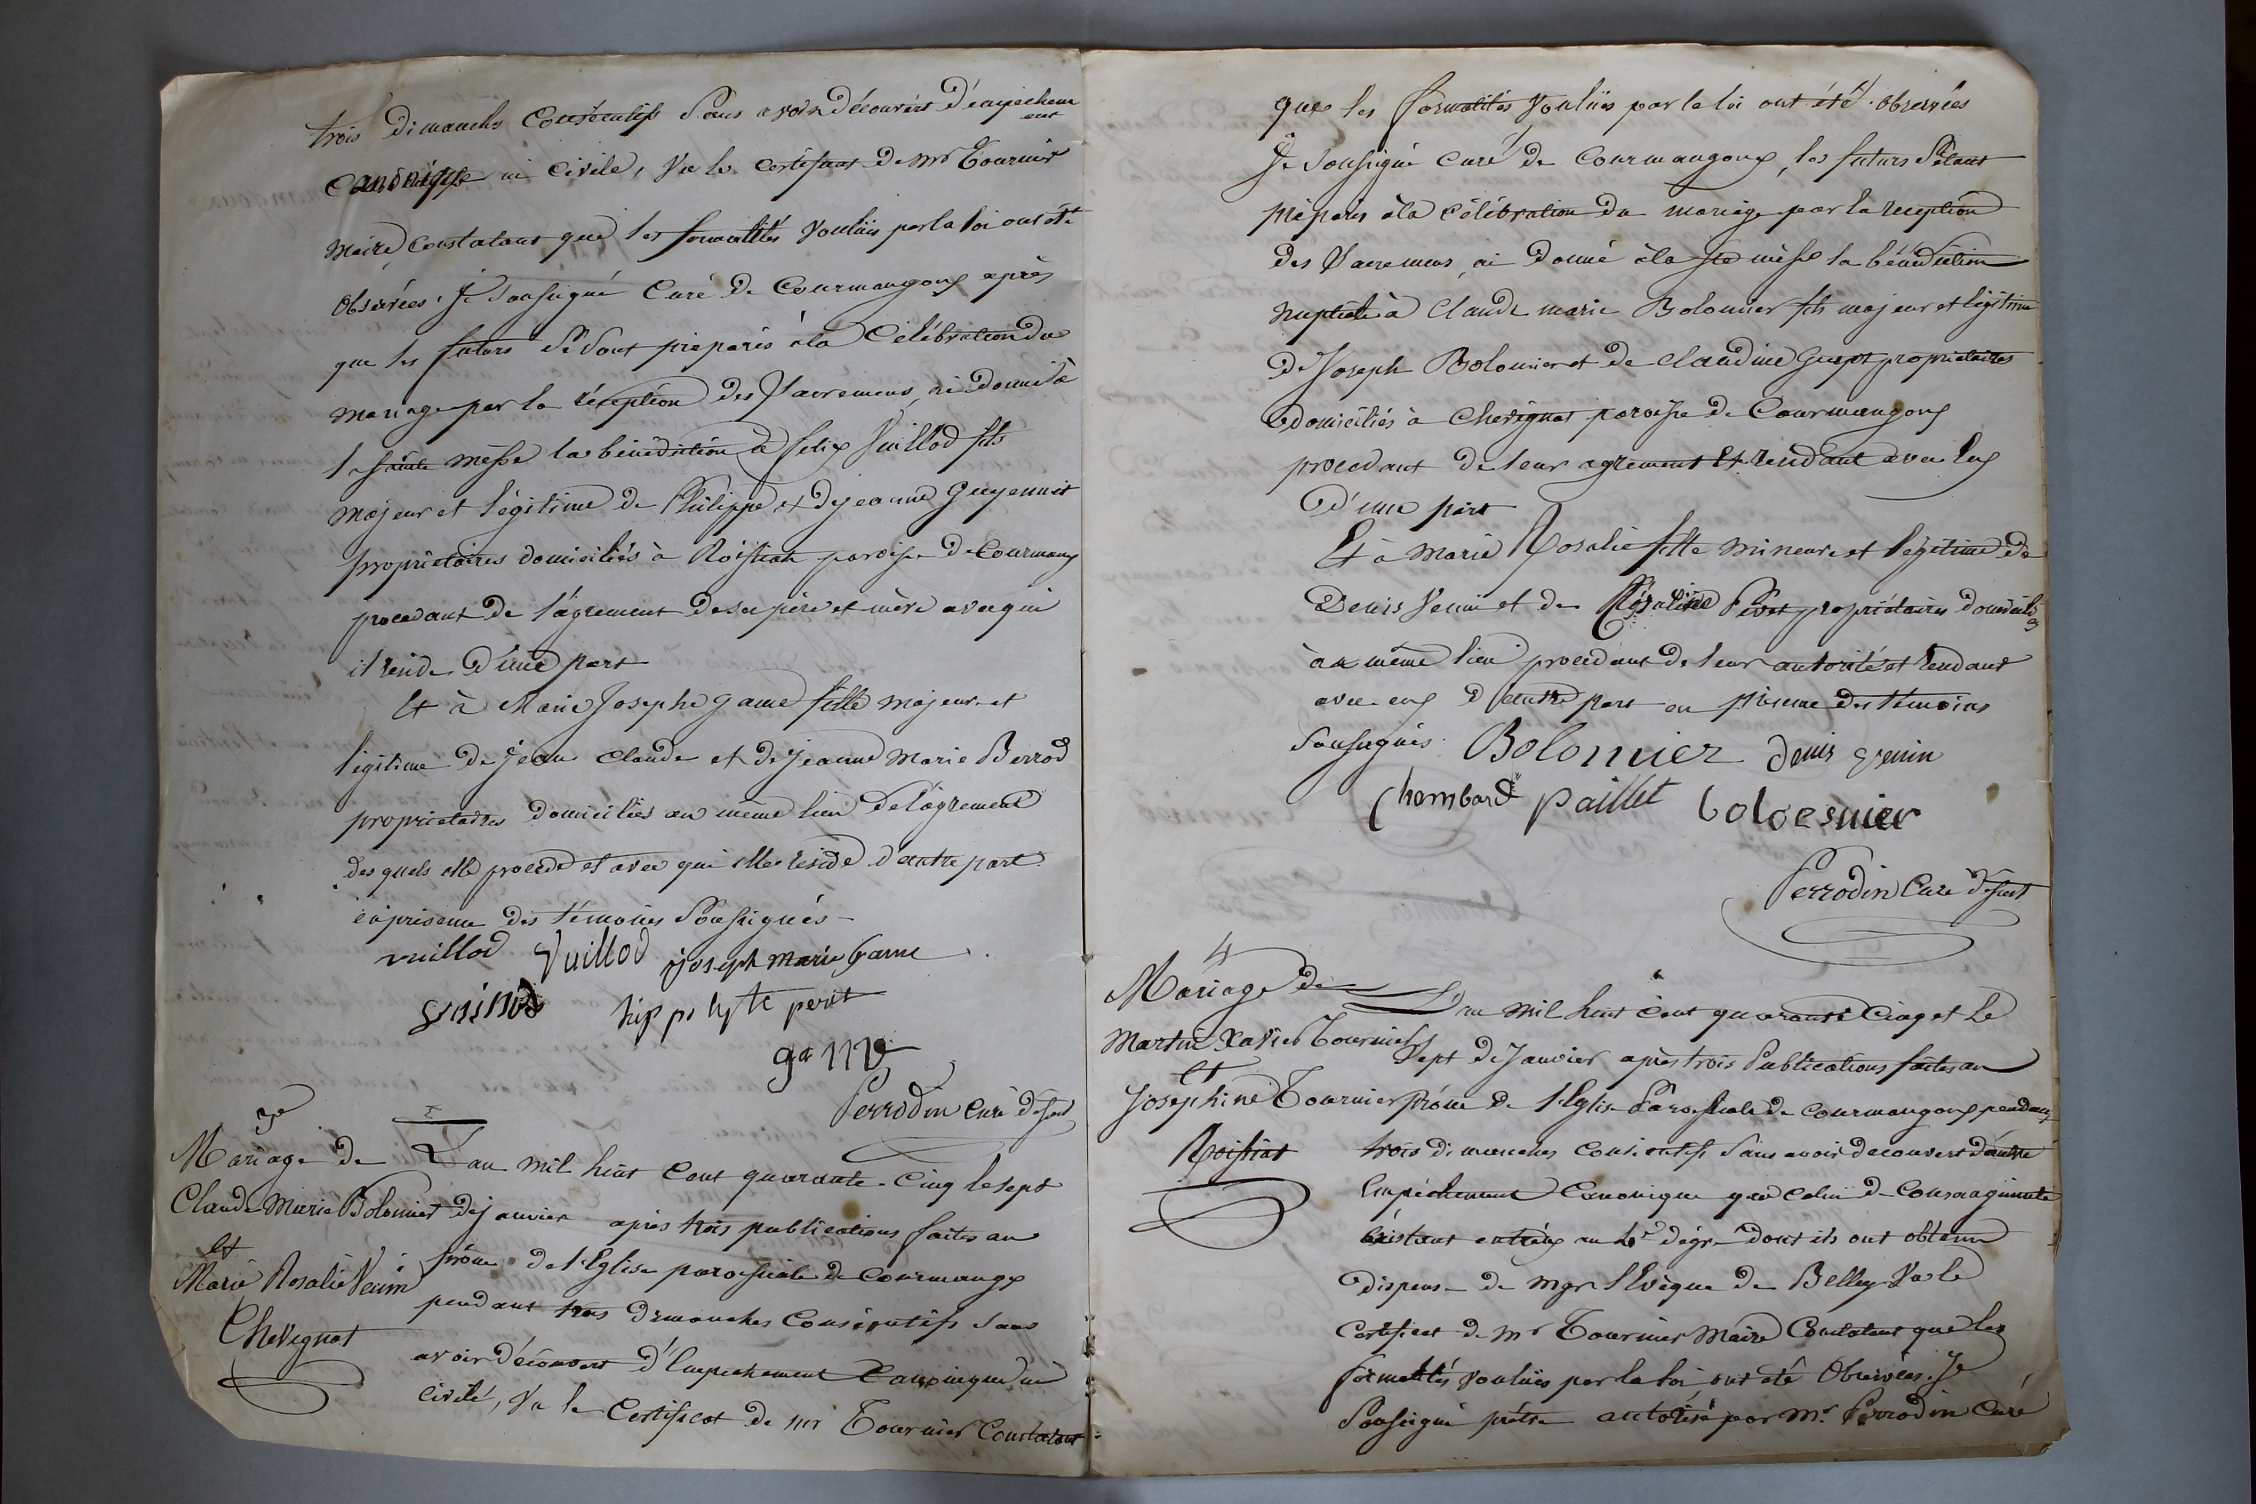 trois Dimanches Consécutifs Sans avoir découvert d'émpechem
ent
Canonique ni Civile, Vu le certificat De mr Tournier
Maire, Constatant que les formalités Vouluës par la loi ont été
Observées, Je Soussigné Curé De Courmangoux après
que les futurs Se Sont préparés à la Célébration du
Mariage par la réception Des Sacremens, ai Donné à
la Sainte Messe la bénédiction à felix Vuillod fils
Majeur et légitime De Philippe et De jeanne Guyennet
propriétaires domiciliés à Roissiat paroisse De Courmang
procedant De l'agrement De ses père et mère avec qui
il reside D'une part
Et à Marie Josephe game fille Majeure et
légitime De Jean Claude et De Jeanne Marie Berrod
propriétaires Domiciliés au même lieu De l'agrement
Desquels elle procede et avec qui elle reside D'autre part
en presence Des témoins Soussignés
vuillod Vuillod joseph marie Game
hippolyte peret
Perrodin Curé Desst
3e
Mariage De
Claude Marie Bolomier
et
Marie Rosalie Venin
Chevignat
L'an Mil huit Cent quarante-Cinq le sept
De janvier après trois publications faites au
prône De l'Eglise paroissiale De Courmangx
pendant trois Dimanches Consécutifs Sans
avoir Découvert d'Empechement Canonique ni
Civile, Vu le Certificat De mr Tournier Constatant
que les formalités Vouluës par la loi ont été Observées
Je Soussigné Curé De Courmangoux, les futurs S'étant
préparés à la Célébration Du Mariage par la reception
Des Sacremens, ai Donné à la ste mèsse la bénédiction
Nuptiale à Claude marie Bolomier fils majeur et légitime
De Joseph Bolomier et De Claudine propriétaires
Domiciliés à Chevignat paroisse De Courmangoux
procedant De leur agrement Et residant avec Eux
D'une part
Et à Marie Rosalie fille Mineure et légitime De
Denis Venin et De Rosalie Peret propriétaires Domiciliés
au même lieu procedant De leur autorité et residant
avec eux D'autre part en présence Des témoins
Soussignés. Bolomier Denis Venin
Chambard Paillet bolomier
Perrodin Curé Desst
4
Mariage De
Martin Xavier Tournier
et
Joséphine Tournier
Roissiat
L'an Mil huit Cent quarante Cinq et le
Sept De Janvier après trois Publications faites au
Prône De l'Eglise Paroissiale De Courmangoux pendant
trois Dimanches Consécutifs Sans avoir Decouvert D'autre
Empéchement Canonique que Celui De Consanguinité
éxistant entr'eux au 4e dégré Dont ils ont obtenu
Dispense De Mgr l'Evêque De Belley Vu le
Certificat De Mr Tournier Maire Constatant que les
formalités vouluës par la loi ont été Observées. Je
Soussigné prêtre autorisé par Mr Perrodin Curé